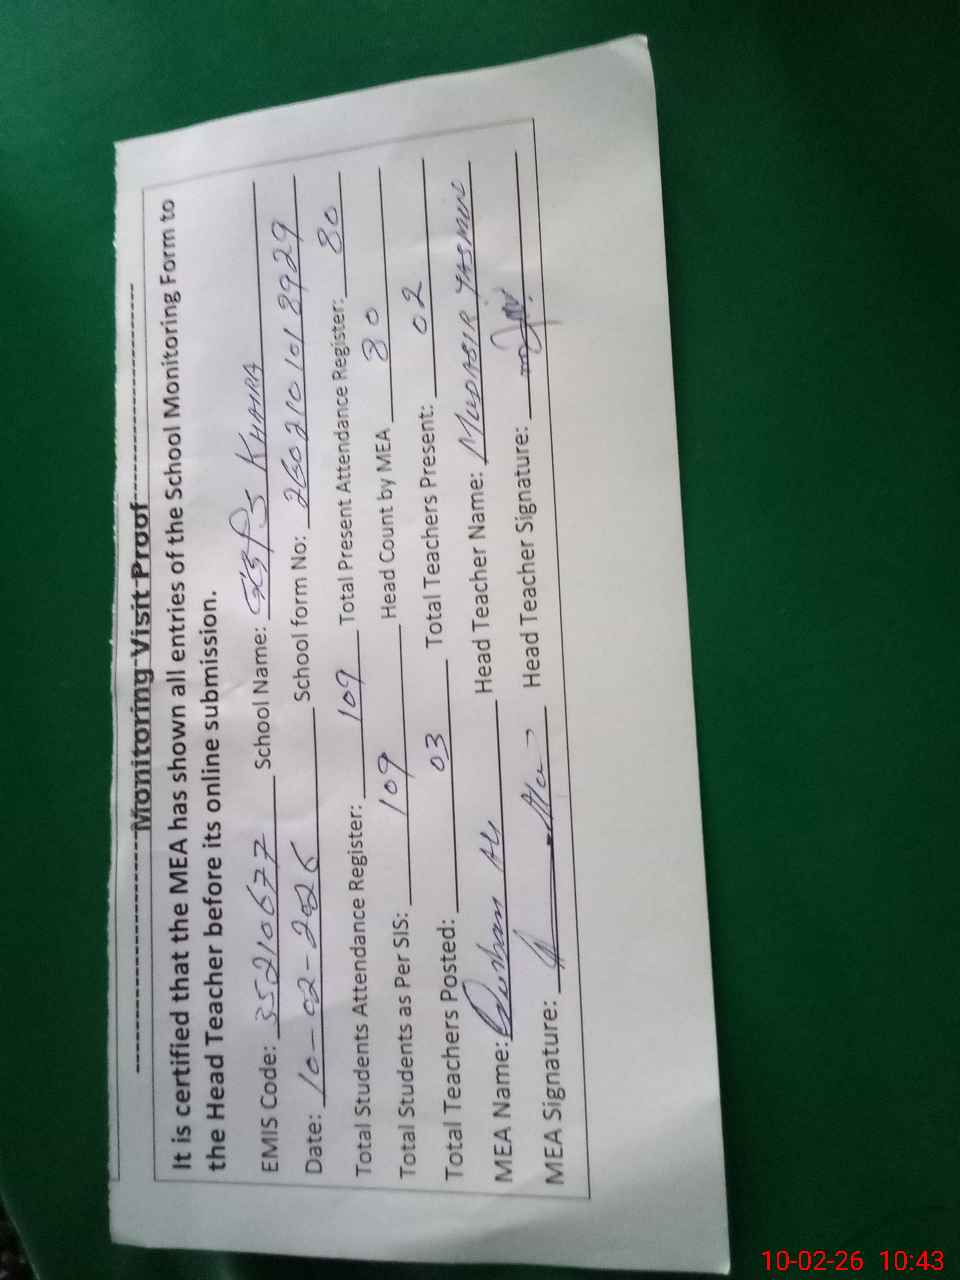 Monitoring Visit Proof
It is certified that the MEA has shown all entries of the School Monitoring Form to
the Head Teacher before its online submission.
EMIS Code: 35210677 School Name: GGPS KHAIRA
Date: 10-02-2026 School form No: 2602101018929
Total Students Attendance Register: 109 Total Present Attendance Register: 80
Total Students as Per SIS: 109 Head Count by MEA 80
Total Teachers Posted: 03 Total Teachers Present: 02
MEA Name: Ali Head Teacher Name: MUDASIR YASMIN
MEA Signature: Head Teacher Signature:
10-02-26 10:43